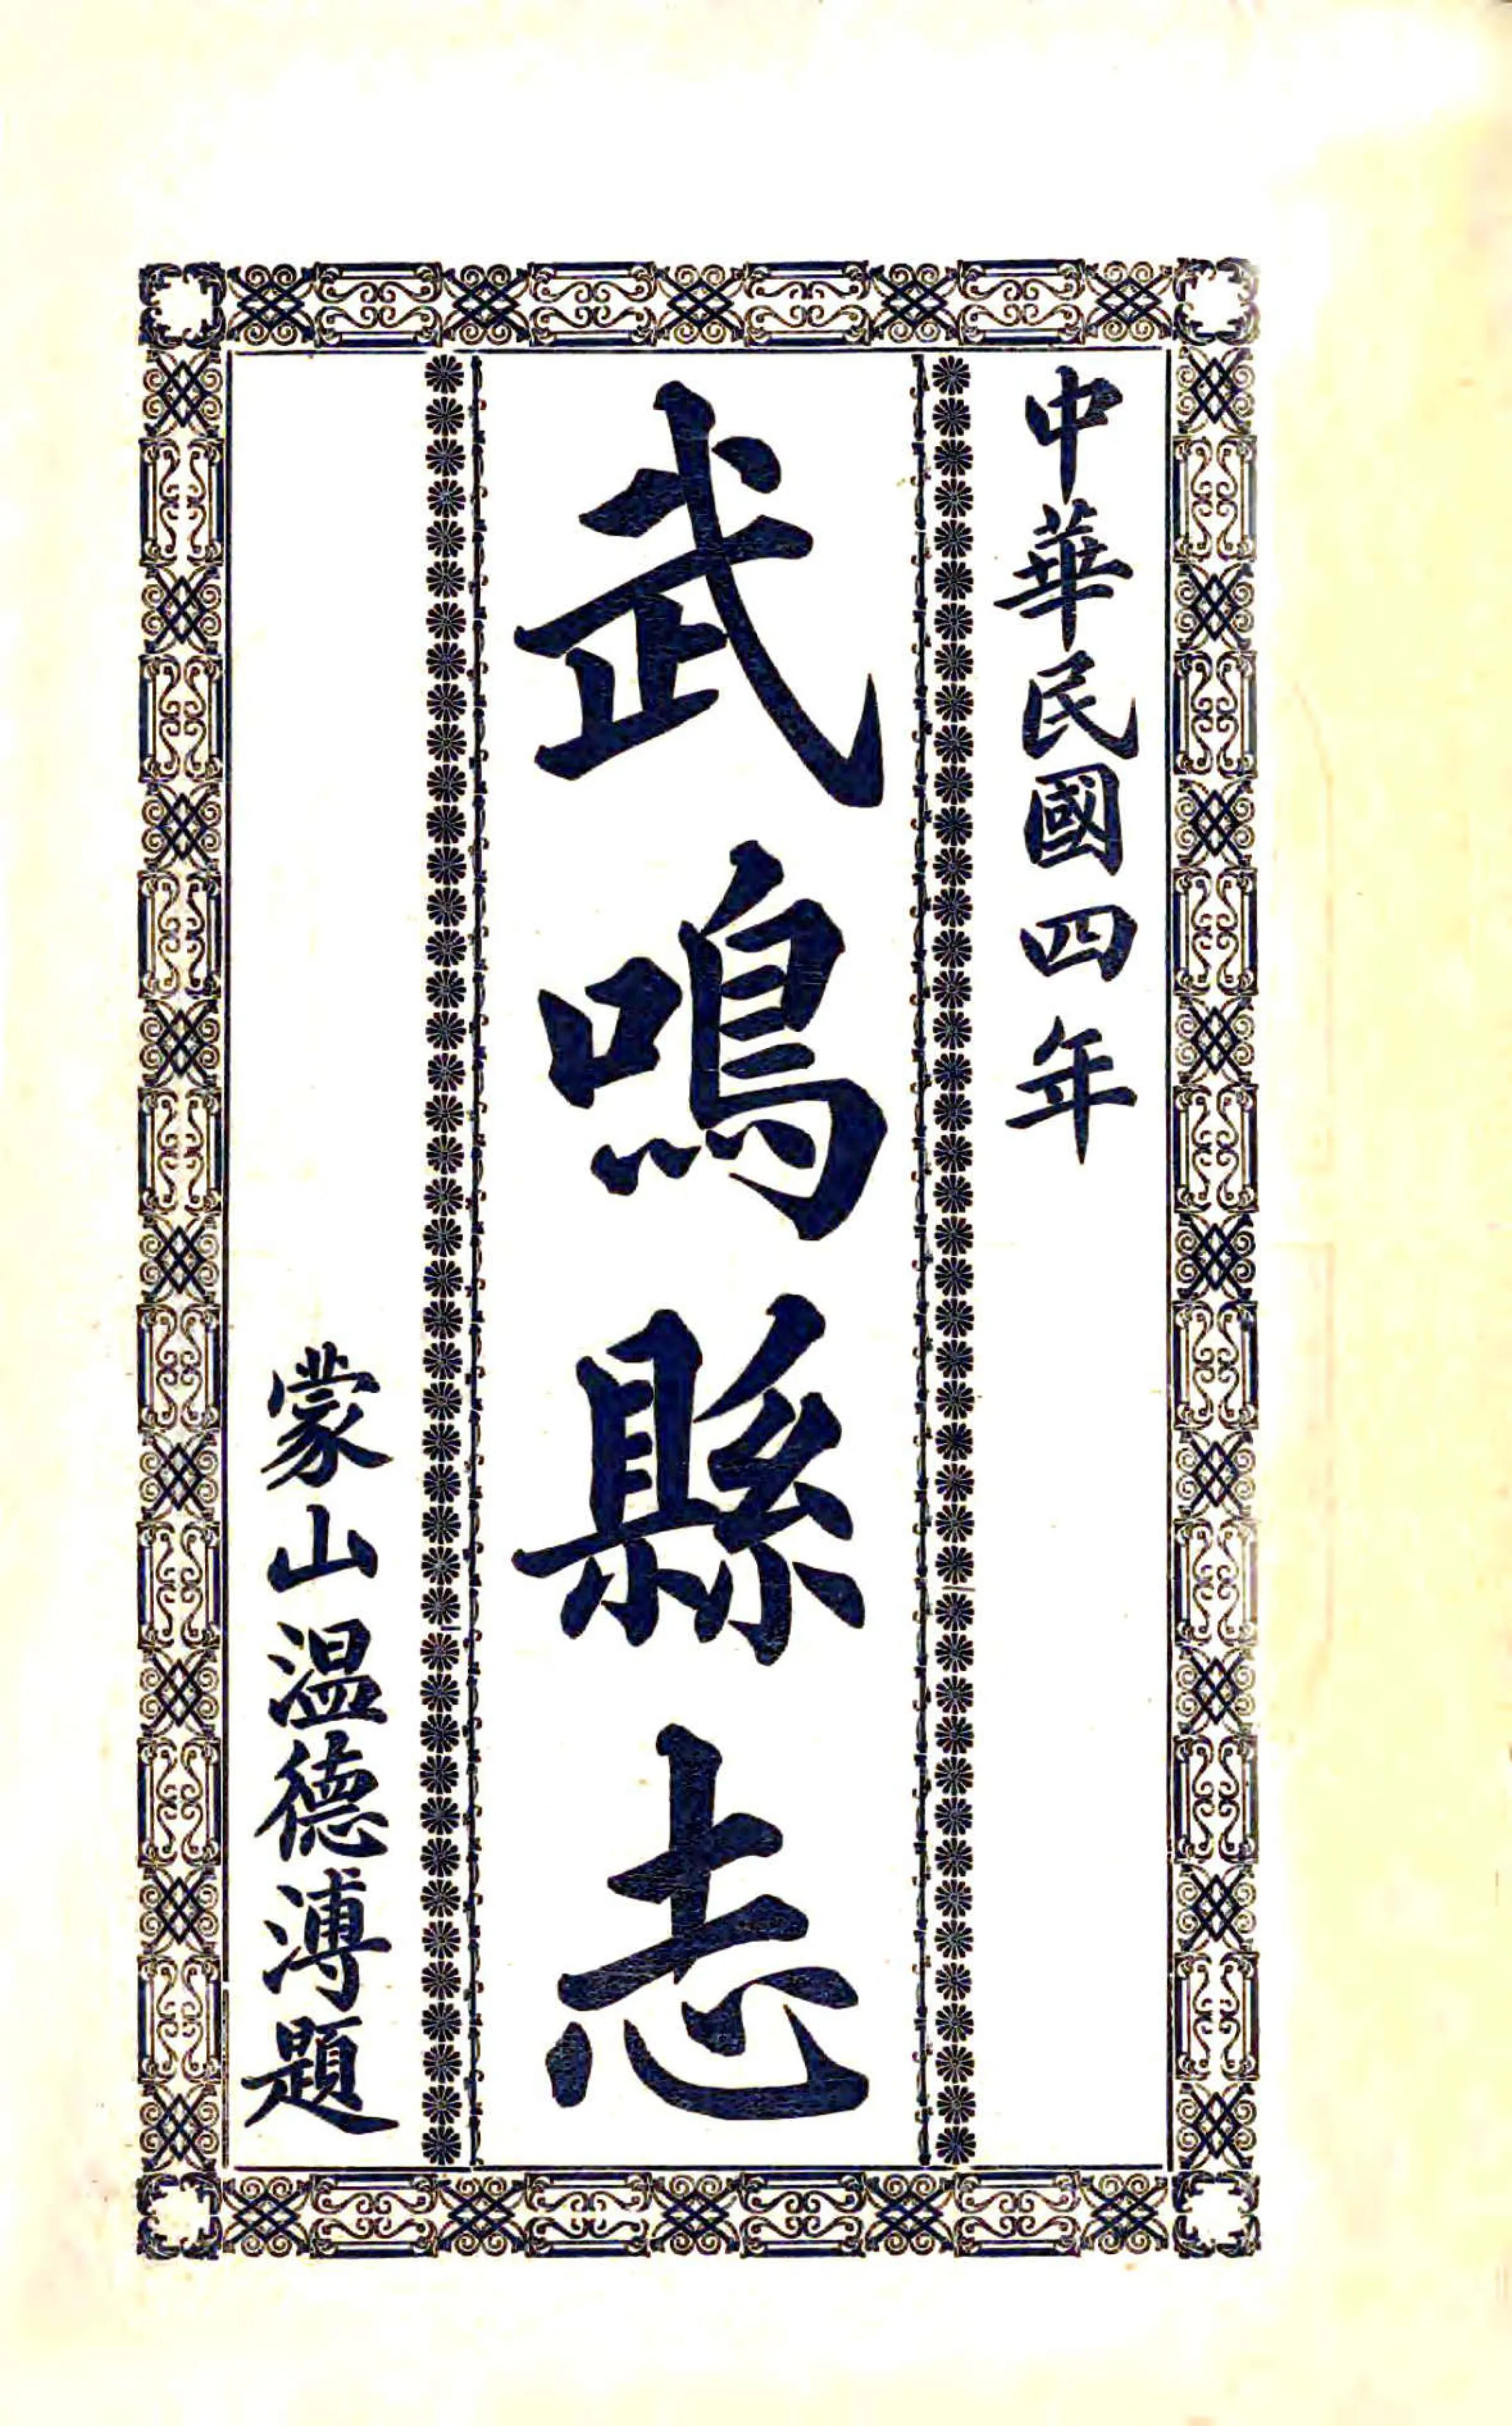 中華民國四年
武鳴縣志
蒙山温德溥題